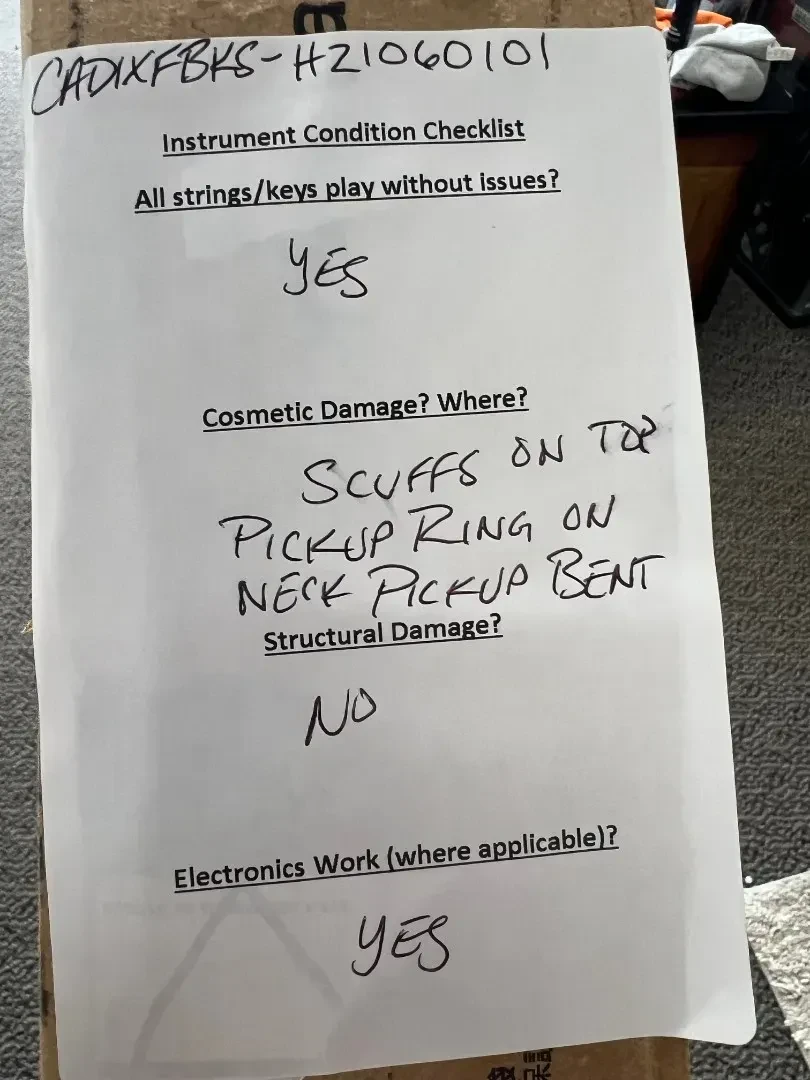 CADIXFBKS-H21060101
Instrument Condition Checklist
All strings/keys play without issues?
YES
Cosmetic Damage? Where?
SCUFFS ON TOP
PICKUP RING ON
NECK PICKUP BENT
Structural Damage?
NO
Electronics Work (where applicable)?
YES